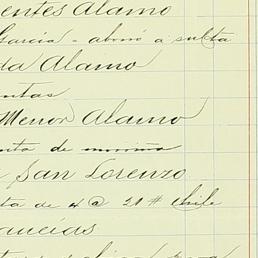 entes Alamo
Garcia - abonó á
da Alamo
ntas
Menor Alamo
nta de
San Lorenzo
ta de 4 @ 21 # chile
ancias